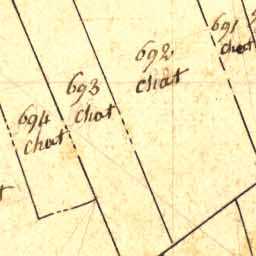 691
chat
692
chat
693
chat
694
chat